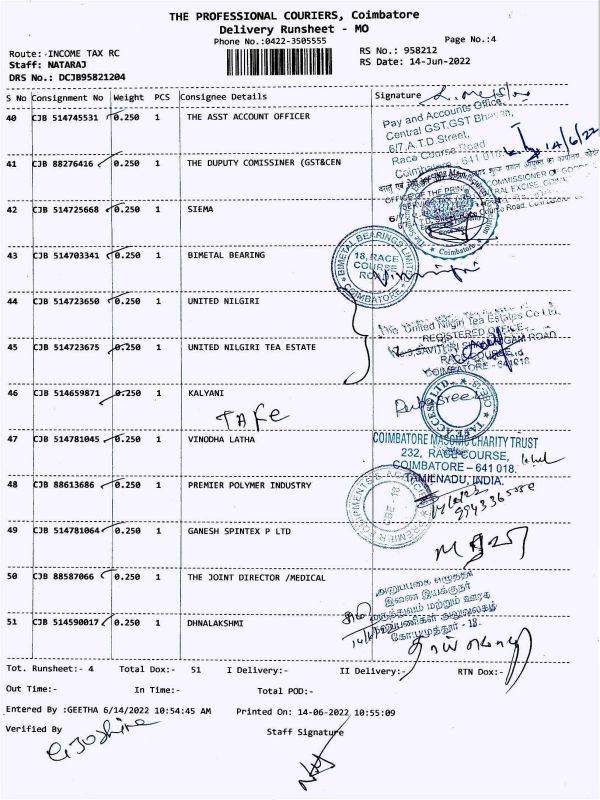 THE PROFESSIONAL COURIERS, Coimbatore
Delivery Runsheet - MO
Phone No.:0422-3505555
Page No.:4
Route: INCOME TAX RC
RS No.: 958212
Staff: NATARAJ
RS Date: 14-Jun-2022
DRS No.: DCJB95821204
S No Consignment No Weight PCS Consignee Details Signature
40 CJB 514745531 0.250 1 THE ASST ACCOUNT OFFICER
Pay and Accounts Office,
Central GST,GST Bhavan,
6/7,A.T.D.Street,
Race Course Road
Coimbatore - 641 018
14/6/22
41 CJB 88276416 0.250 1 THE DUPUTY COMISSINER (GST&CEN
42 CJB 514725668 0.250 1 SIEMA
Coimbatore
43 CJB 514703341 0.250 1 BIMETAL BEARING
BIMETAL BEARINGS LIMITED
18, RACE
COURSE
COIMBATORE
44 CJB 514723650 0.250 1 UNITED NILGIRI
The United Nilgiri Tea Estates Co Ltd.,
REGISTERED OFFICE
45 CJB 514723675 0.250 1 UNITED NILGIRI TEA ESTATE
RACE COURSE
COIMBATORE - 641018
46 CJB 514659871 0.250 1 KALYANI
TAFE
TAFE ACCESS LTD.
47 CJB 514781045 0.250 1 VINODHA LATHA
COIMBATORE MASONIC CHARITY TRUST
232, RACE COURSE,
COIMBATORE – 641 018.
TAMILNADU, INDIA.
48 CJB 88613686 0.250 1 PREMIER POLYMER INDUSTRY
49 CJB 514781064 0.250 1 GANESH SPINTEX P LTD
50 CJB 88587066 0.250 1 THE JOINT DIRECTOR /MEDICAL
இணை இயக்குநர்
மருத்துவம் மற்றும் ஊரக
51 CJB 514590017 0.250 1 DHNALAKSHMI
கோயமுத்தூர் - 18.
Tot. Runsheet:- 4 Total Dox:- 51 I Delivery:- II Delivery:- RTN Dox:-
Out Time:- In Time:- Total POD:-
Entered By :GEETHA 6/14/2022 10:54:45 AM Printed On: 14-06-2022 10:55:09
Verified By Staff Signature